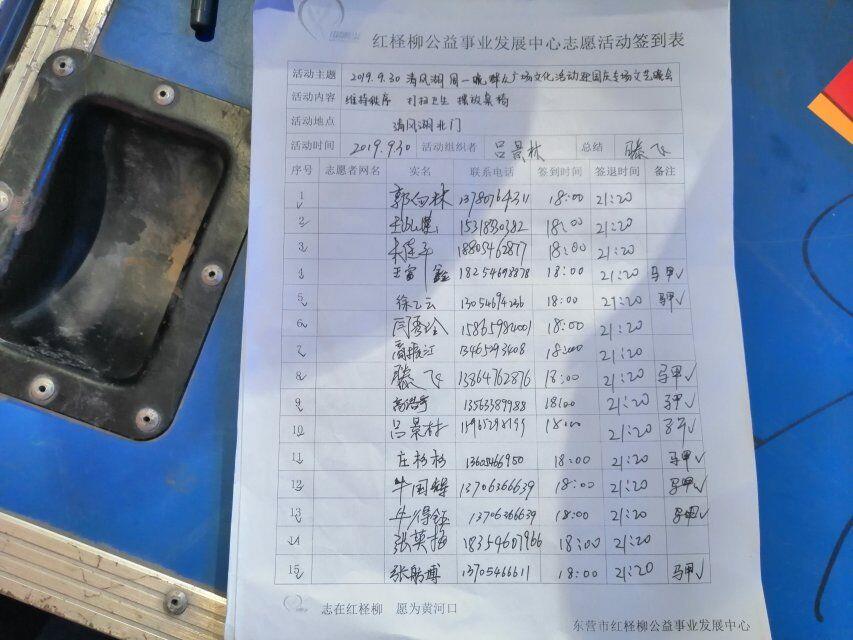 红柽柳公益事业发展中心志愿活动签到表
活动主题 2019.9.30 清风湖周一晚群众广场文化活动迎国庆专场文艺晚会
活动内容 维持秩序 打扫卫生 摆放桌椅
活动地点 清风湖北门
活动时间 2019.9.30 活动组织者 吕景林 总结 滕飞
序号 志愿者网名 实名 联系电话 签到时间 签退时间 备注
1 18:00 21:20
2 15318330382 18:00 21:20
3 18805462877 18:00 21:20
4 王富鑫 18254698878 18:00 21:20 马甲√
5 徐云 13054694236 18:00 21:20 马甲√
6 闫秀玲 18:00 21:20
7 高振江 13465293408 18:00 21:20
8 滕飞 13864762876 18:00 21:20 马甲√
9 13563389988 18:00 21:20 马甲√
10 吕景林 18:00 21:20 马甲√
11 庄杉杉 18:00 21:20 马甲√
12 牛国锋 13706366639 18:00 21:20 马甲√
13 牛得钰 13706366639 18:00 21:20 马甲√
14 张英梅 18354607966 18:00 21:20
15 张鹏博 13705466611 18:00 21:20 马甲√
志在红柽柳 愿为黄河口
东营市红柽柳公益事业发展中心